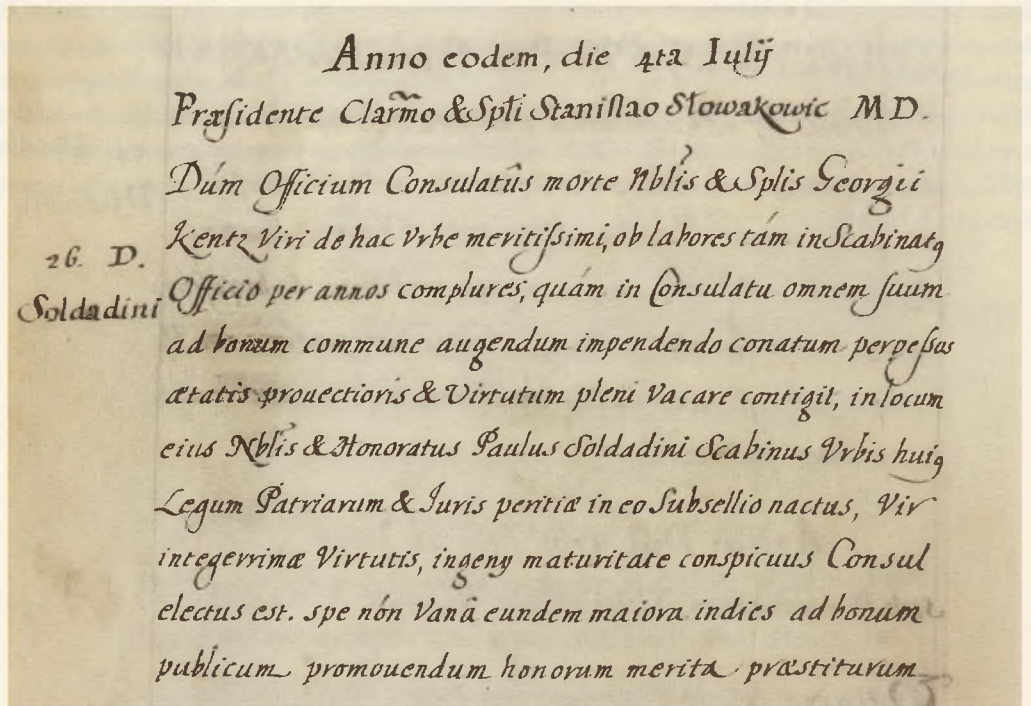 Anno eodem, die 4ta Iulij
Præſidente Clarm̃o & Spl̃i Staniſlao Słowakowic M D.
Dúm Officium Consulatûs morte Nbl̃is & Splis Georgii
Kentz Viri de hac Vrbe meritiſsimi, ob labores tám in Scabinatꝯ
26. D.
Soldadini
Officio per annos complures, quám in Consulatu omnem ſuum
ad bonum commune augendum impendendo conatum perpeſsos
ætatis prouectioris & Virtutum pleni Vacare contigit, in locum
eius Nbl̃is & Honoratus Paulus Soldadini Scabinus Vrbis huiꝯ
Legum Patriarum & Juris peritiæ in eo Subsellio nactus, Vir
integerrimæ Virtutis, ingenÿ maturitate conspicuus Consul
electus est. spe nón Vanâ eundem maiora indies ad bonum
publicum promouendum honorum merita præstiturum